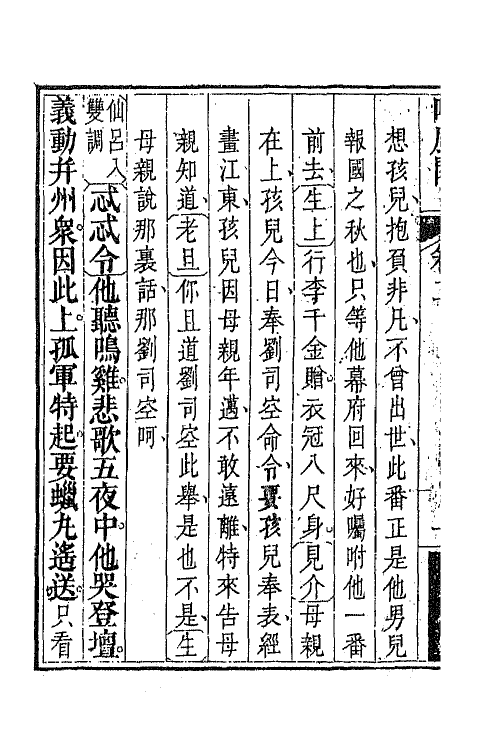 想孩兒、抱負非凡、不曾出世、此番正是他男兒
報國之秋也、只等他幕府回來、好囑咐他一番
前去、生上行李千金贈、衣冠八尺身、見介母親
在上、孩兒今日奉劉司空命、令賫孩兒奉表、經
畫江東、孩兒因母親年邁、不敢遠離、特來告母
親知道、老旦你且道劉司空此舉是也不是、生
母親說那裏話、那劉司空呵、
仙呂入雙調忒忒令他聽鳴雞。悲歌五夜中。他哭登壇。
義動幷州衆。因此上。孤軍特起。要蠟丸遙送。只看